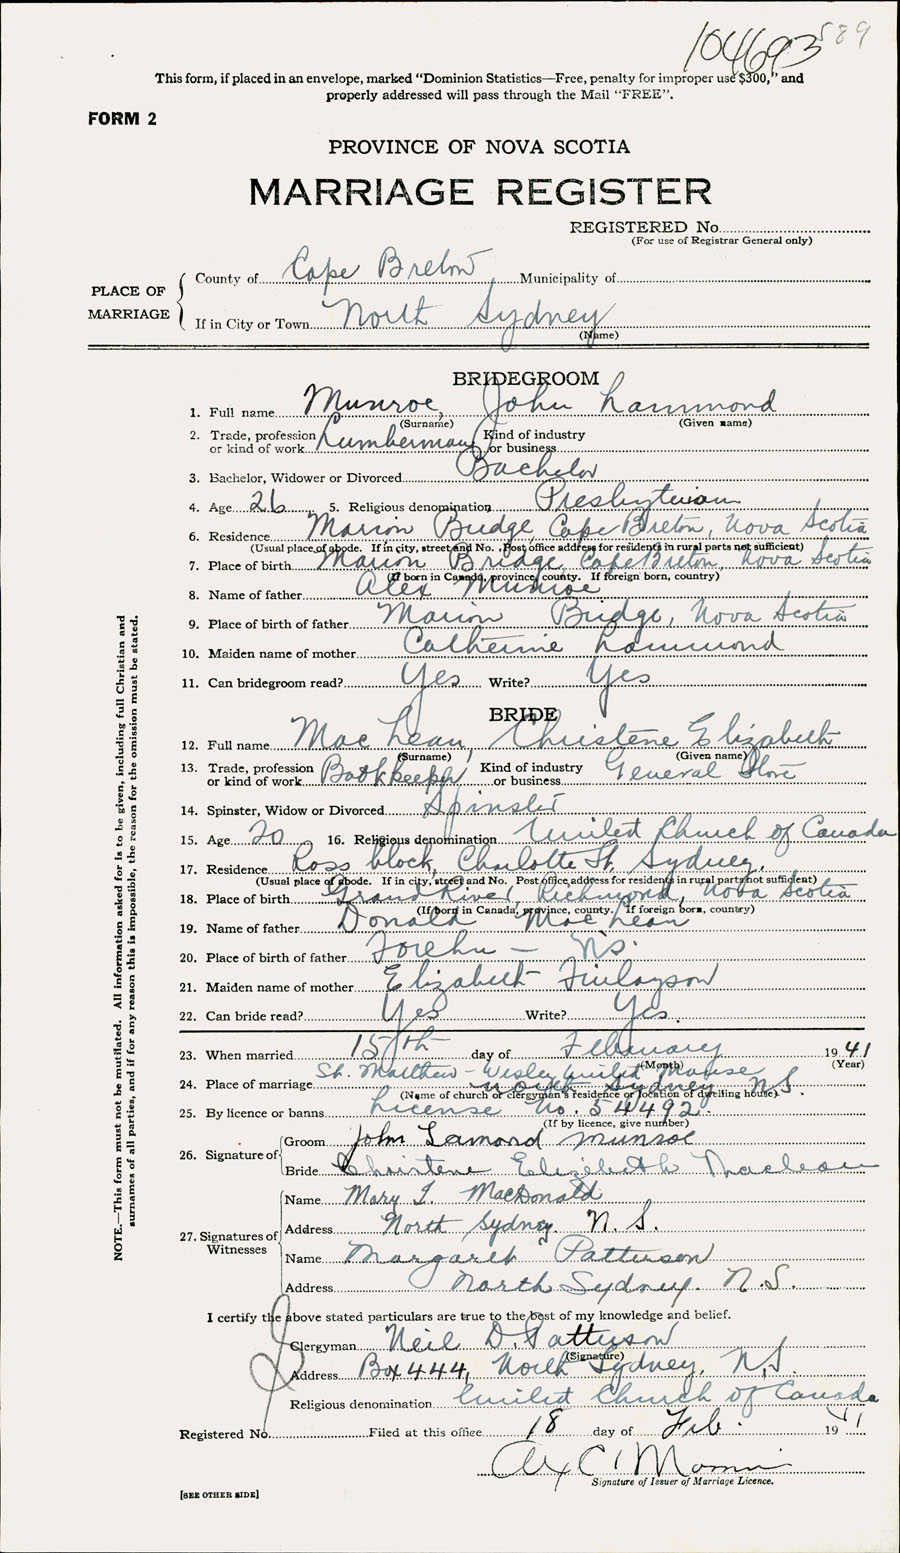 104693 589
This form, if placed in an envelope, marked "Dominion Statistics—Free, penalty for improper use $300," and
properly addressed will pass through the Mail "FREE".
FORM 2
PROVINCE OF NOVA SCOTIA
MARRIAGE REGISTER
REGISTERED No.
(For use of Registrar General only)
PLACE OF MARRIAGE
County of Cape Breton Municipality of
If in City or Town North Sydney
(Name)
BRIDEGROOM
1. Full name Munroe, John Lammond
(Surname) (Given name)
2. Trade, profession or kind of work Lumberman Kind of industry or business
3. Bachelor, Widower or Divorced Bachelor
4. Age 26 5. Religious denomination Presbyterian
6. Residence Marion Bridge, Cape Breton, Nova Scotia
(Usual place of abode. If in city, street and No. Post office address for residents in rural parts not sufficient)
7. Place of birth Marion Bridge, Cape Breton, Nova Scotia
(If born in Canada, province, county. If foreign born, country)
8. Name of father Alex Munroe
9. Place of birth of father Marion Bridge, Nova Scotia
10. Maiden name of mother Catherine Lammond
11. Can bridegroom read? Yes Write? Yes
BRIDE
12. Full name MacLean, Christene Elizabeth
(Surname) (Given name)
13. Trade, profession or kind of work Bookkeeper Kind of industry or business General Store
14. Spinster, Widow or Divorced Spinster
15. Age 20 16. Religious denomination United Church of Canada
17. Residence Ross block, Charlotte St, Sydney.
(Usual place of abode. If in city, street and No. Post office address for residents in rural parts not sufficient)
18. Place of birth Grand River, Richmond, Nova Scotia
(If born in Canada, province, county. If foreign born, country)
19. Name of father Donald MacLean
20. Place of birth of father Forchu - N.S.
21. Maiden name of mother Elizabeth Finlayson
22. Can bride read? Yes Write? Yes.
23. When married 15th day of February 1941
(Month) (Year)
St. Matthew-Wesley United Manse
24. Place of marriage North Sydney N.S.
(Name of church or clergyman's residence or location of dwelling house)
25. By licence or banns License No. 54492.
(If by licence, give number)
26. Signature of Groom John Lamond Munroe
Bride Christene Elizebeth Maclean
27. Signatures of Witnesses
Name Mary I. MacDonald
Address North Sydney. N.S.
Name Margaret Patterson
Address North Sydney. N.S.
I certify the above stated particulars are true to the best of my knowledge and belief.
Clergyman Neil D. Patterson
(Signature)
Address Box 444, North Sydney, N.S.
Religious denomination United Church of Canada
Registered No. Filed at this office 18 day of Feb. 1941
Signature of Issuer of Marriage Licence.
[SEE OTHER SIDE]
NOTE.—This form must not be mutilated. All information asked for is to be given, including full Christian and
surnames of all parties, and if for any reason this is impossible, the reason for the omission must be stated.